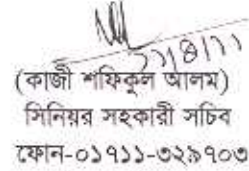 ২১/৪/১১
(কাজী শফিকুল আলম)
সিনিয়র সহকারী সচিব
ফোন-০১৭১১-৩২৯৭০৩